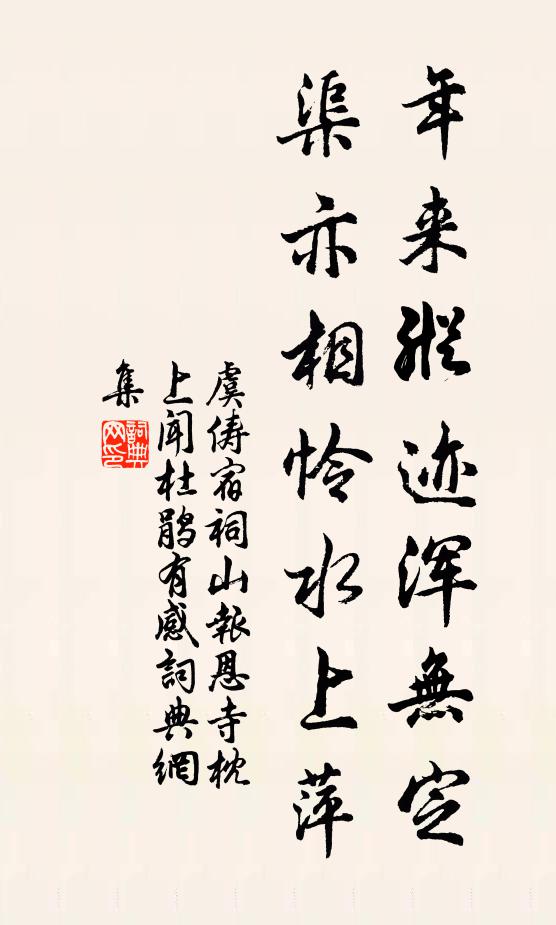 年来蹤迹浑無定
渠亦相怜水上萍
虞俦宿祠山報恩寺枕
上闻杜鹃有感詞典網
集
詞典
网印